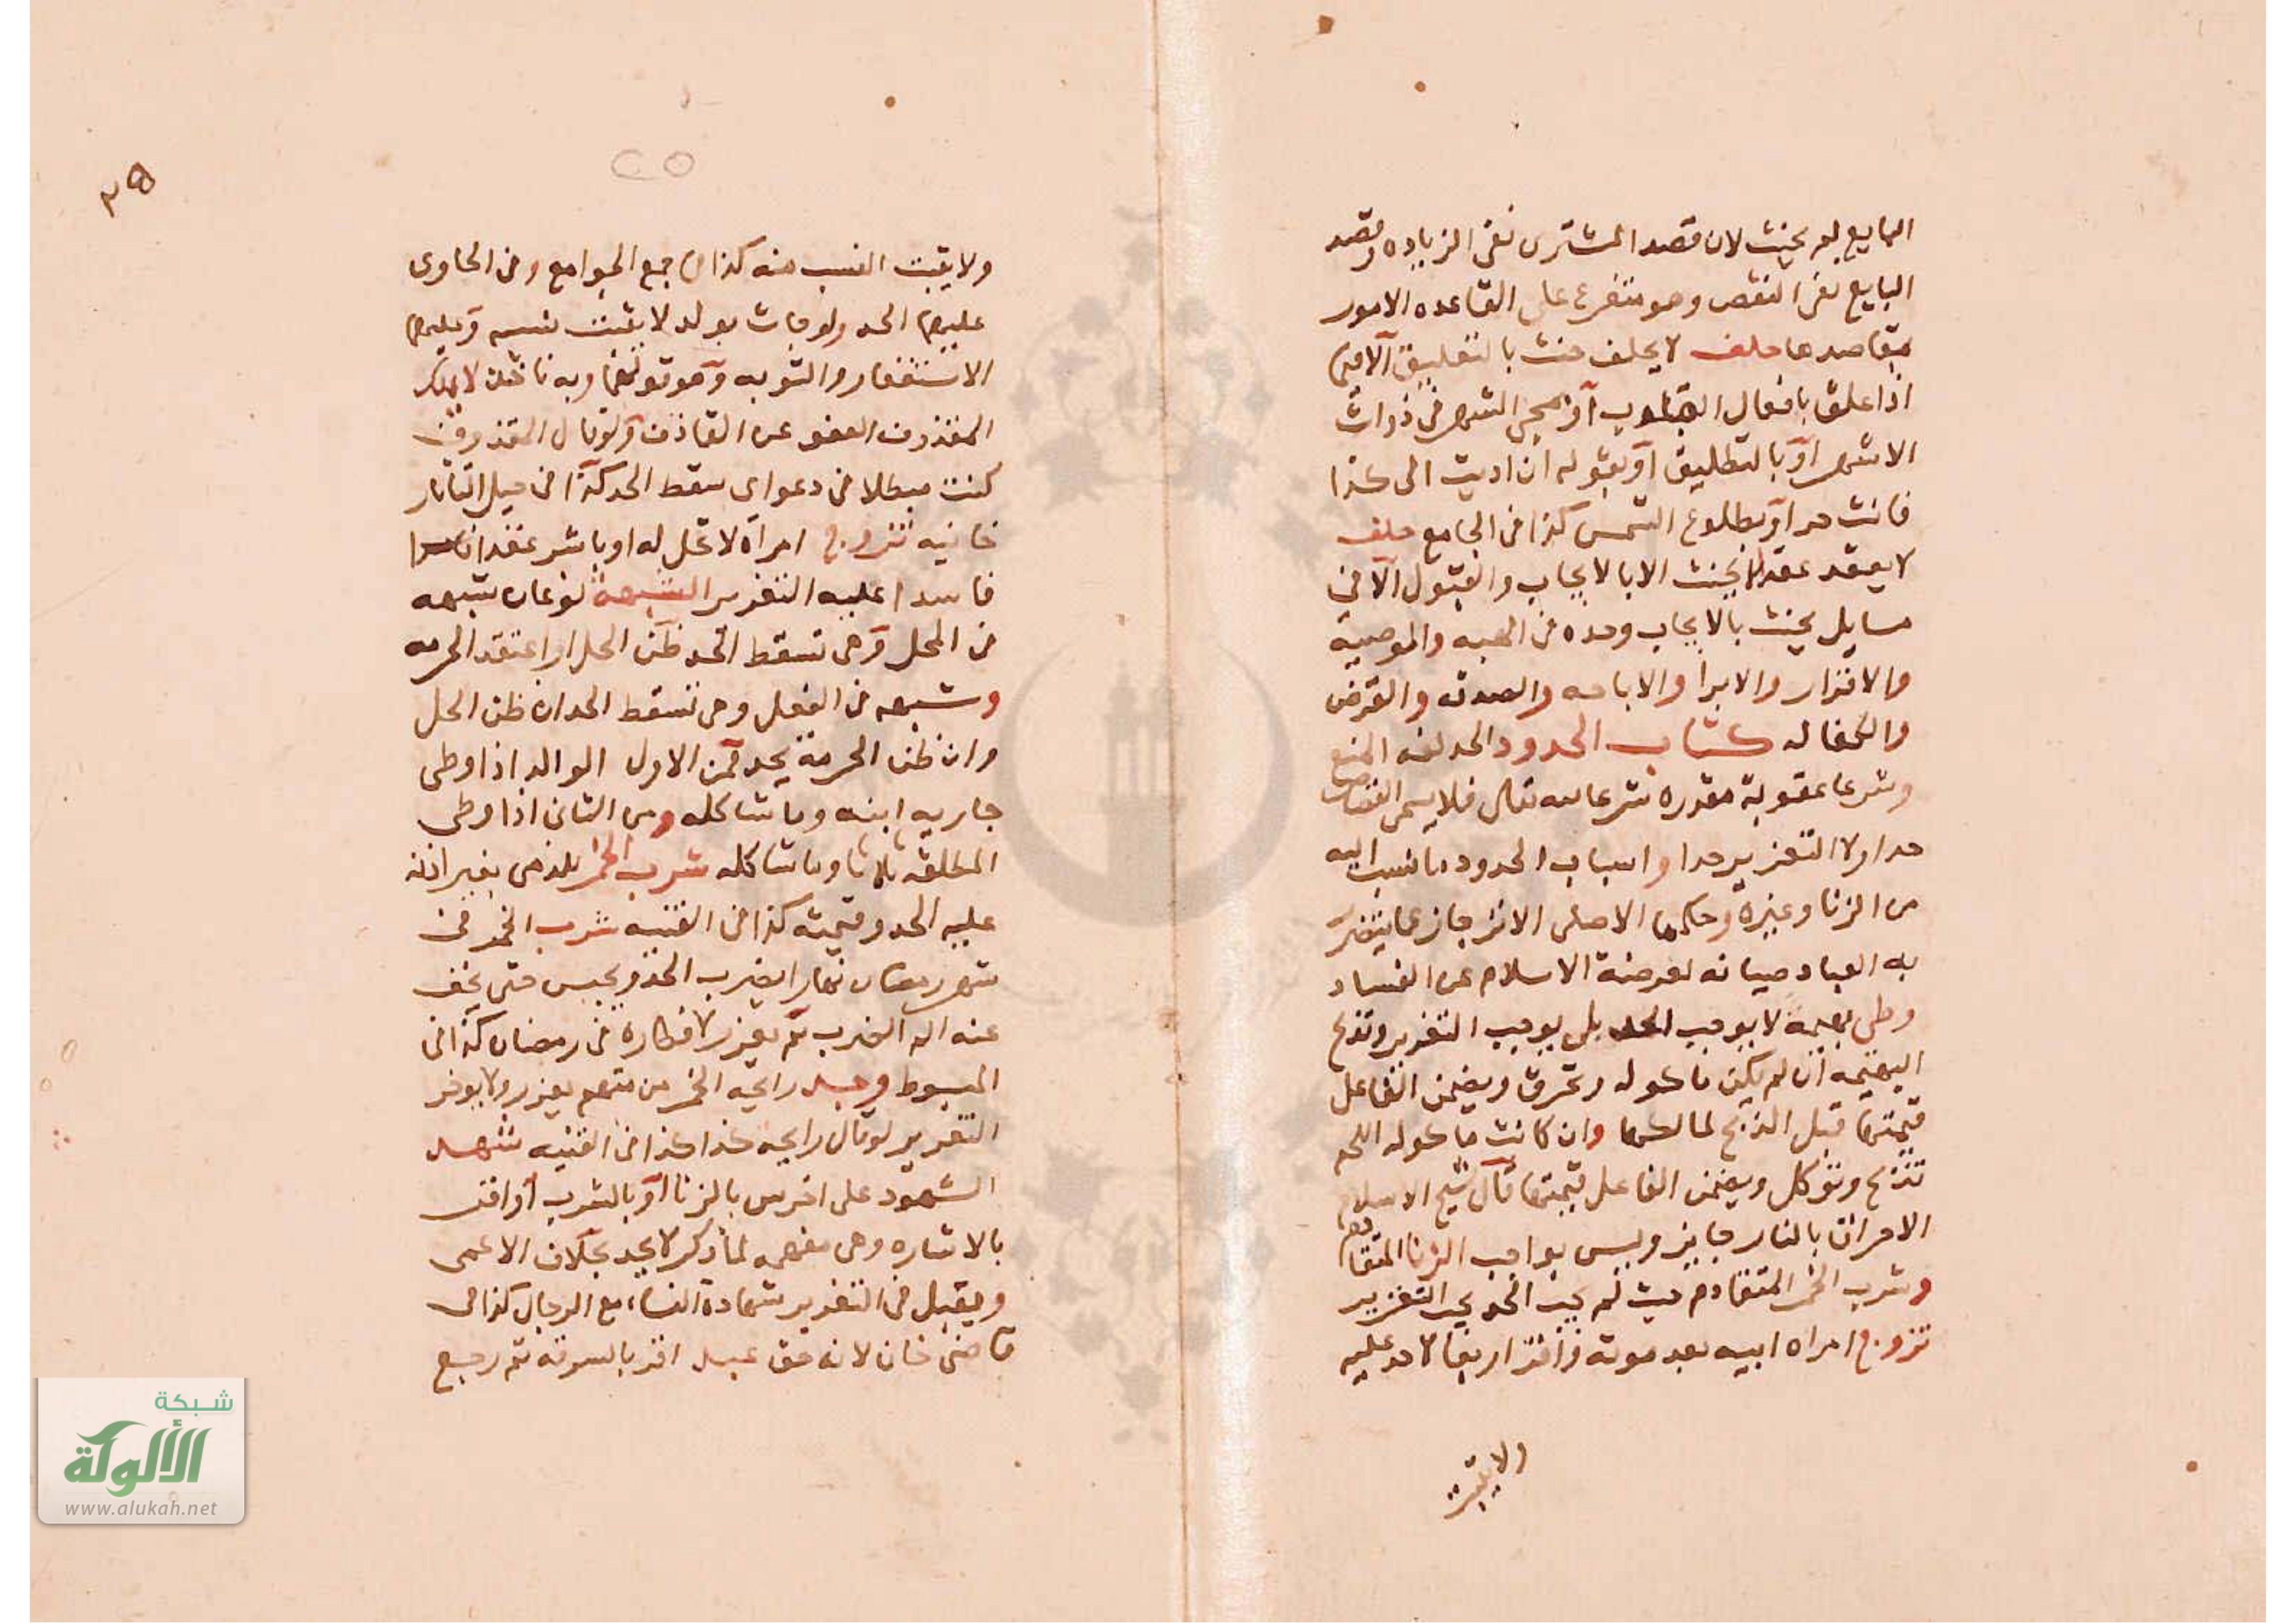 البايع به يحنث لان قصد المشترى نفى الزياده وقصد
البايع نفى النقص وهو متفرع على القاعده الامور
بمقاصدها حلف لا يحلف حنث بالتعليق الا فيما
اذا علق بافعال القلوب او بمجى الشهر فى ذوات
الاشهر او بالتطليق او بقوله ان اديت الى كذا
فانت حر او بطلوع الشمس كذا فى الجامع حلف
لا يعقد عقدا لا يحنث الا بالايجاب والقبول الا فى
مسايل يحنث بالايجاب وحده فى الهبه والوصية
والاقرار والابرا والاباحه والصدقه والقرض
والكفاله كتاب الحدود الحد لغه المنع
وشرعا عقوبة مقدره شرعا لله تعالى فلا يسمى القصاص
حدا ولا التعزير حدا واسباب الحدود ما نسبت اليه
من الزنا وغيره وحكمها الاصلى الانزجار عما يتضرر
به العباد صيانه لعرضة الاسلام عن الفساد
وطى بهيمة لا يوجب الحد بلى يوجب التعزير وتذبح
البهيمه ان لم يكن ماكوله وتحرق ويضمن الفاعل
قيمتها قبل الذبح لمالكها وان كانت ماكوله اللحم
تذبح وتوكل ويضمن الفاعل قيمتها قال شيخ الاسلام
الاحراق بالنار جايز وليس بواجب الزنا المتقادم
وشرب الخمر المتقادم حيث لم يجب الحد يجب التعزير
تزوج امراه ابيه بعد موته واقرا ربعا لا حد عليه
ولا يثبت
ولا يثبت النسب منه كذا فى جمع الجوامع وفى الحاوى
عليهما الحد ولو جات بولد لا يثبت نسبه وعليهما
الاستغفار والتوبه وهو قولهما وبه ناخذ لا يملك
المقذوف العفو عن القاذف ولو قال المقذوف
كنت مبطلا فى دعواى سقط الحد كذا فى حيل التاتار
خانيه تزوج امراة لا تحل له او باشر عقدا
فاسدا عليه التعزير الشبهة نوعان شبهه
فى المحل وهى تسقط الحد ظن الحل او اعتقد الحرمه
وشبهه فى الفعل وهى تسقط الحد ان ظن الحل
وان ظن الحرمة يحد فمن الاول الوالد اذا وطى
جاريه ابنه وما شاكله ومن الثانى اذا وطى
المطلقه ثلاثا وما شاكله شرب الخمر لذمى بغير اذنه
عليه الحد وقيمته كذا فى القنيه شرب الخمر فى
شهر رمضان نهارا يضرب الحد ويحبس حتى يخف
عنه الم الضرب ثم يعزر لافطاره فى رمضان كذا فى
المبسوط وجد رايحة الخمر من متهم يعزر ولا يوخر
التعزير لو قال رايحه كذا كذا فى القنيه شهد
الشهود على اخرس بالزنا او بالشرب او اقر
بالاشاره وهى مفهمه لما ذكر لا يحد بخلاف الاعمى
ويقبل فى التعزير شهادة النساء مع الرجال كذا فى
قاضى خان لانه حق عبد اقر بالسرقه ثم رجع
٢٥
شبكة
الألوكة
www.alukah.net